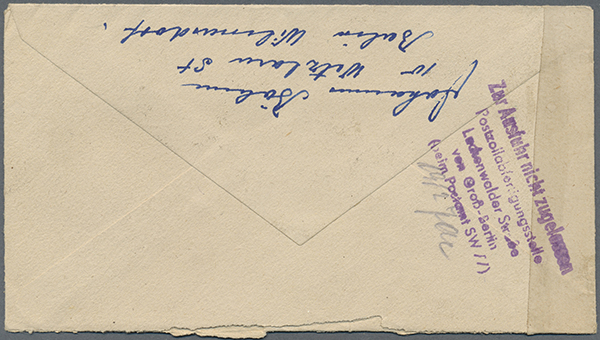 Johannes Böhm
Berlin Wilmersdorf.
Zur Ausfuhr nicht zugelassen
Postzollabfertigungsstelle
Luckenwalder Straße
von Groß-Berlin
(beim Postamt SW 77)